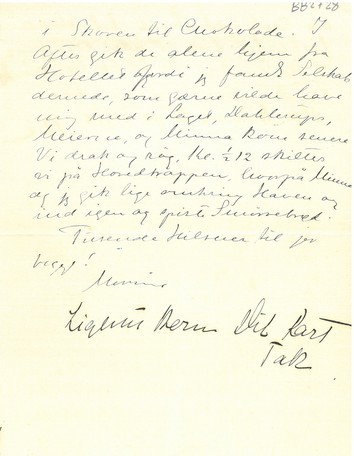 BB2428
i Skoven til Chokolade. I
Aftes gik de alene hjem fra
Hotellet fordi jeg fandt Selskab
dernede, som gærne vilde have
mig med i Laget, Dahlerups,
Meiersen, og Minna kom senere
Vi drak og røg, Kl. ½ 12 skiltes
vi på Hovedtrappen, hvorpå Minna
og jeg gik lige omkring Haven og
ind igen og spiste Smørrebrød.
Tusende Hilsner til jer
begge!
Ligeens Kern Dit Kort
Tak